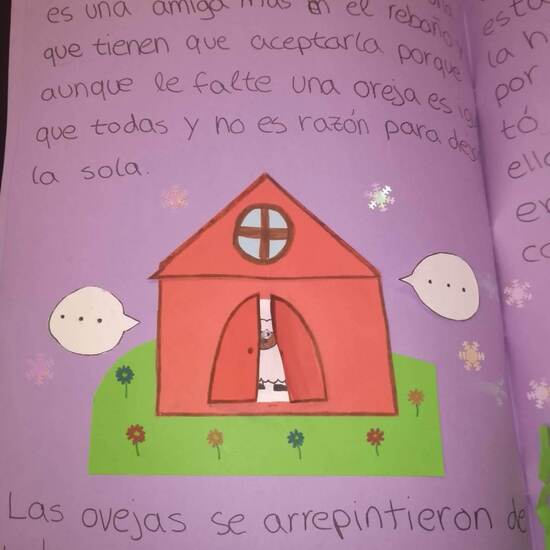 es una amiga más en el rebaño y
que tienen que aceptarla porque
aunque le falte una oreja es
que todas y no es razón para
la sola.
...
...
Las ovejas se arrepintieron de
esta
la h
por
tó
ella
er
co